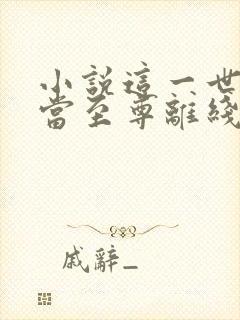 小說這一世
當至尊離綫
戚辭_